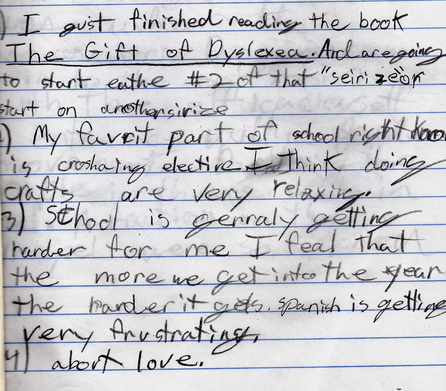 ) I gust finished reading the book
The Gift of Dyslexea. And are going
to start eathe #2 of that "seiri zeor
start on anothersirize
2) My favrit part of school right know
is croshaing elective I think doing
crafts are very relaxing.
3) School is gennraly getting
harder for me I feal that
the more we get into the year
the harder it gets. spanish is getting
very frustrating.
4) abort love.